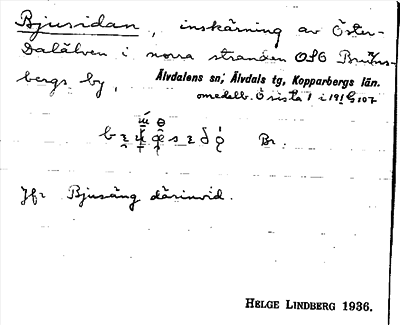 Bjusidan, inskärning av Öster-
Dalälven i norra stranden OSO Brunns-
bergs by,
Älvdalens sn, Älvdals tg, Kopparbergs län.
omedelb. Ö sista 1 i 191 G 107
Br.
Jfr Bjusäng därinvid.
HELGE LINDBERG 1936.